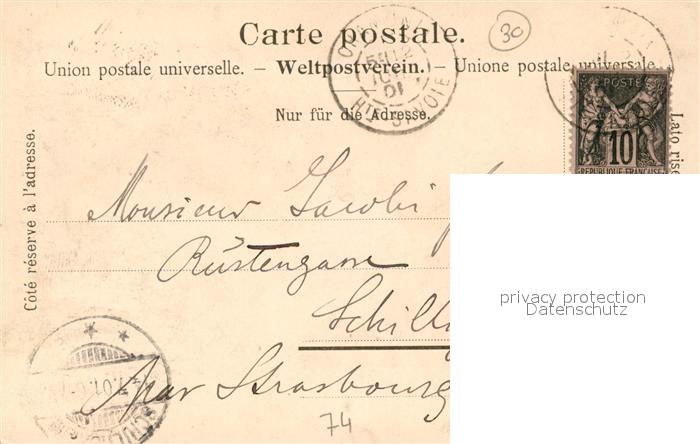 Carte postale.
30
Union postale universelle. — Weltpostverein. — Unione postale universale.
Nur für die Adresse.
Côté réservé à l'adresse.
Lato rise
POSTE
10
REPUBLIQUE FRANÇAISE
HTE SAVOIE
01
Monsieur Jacobi
Rüstengasse
Schilti
Par Strasbourg
74
privacy protection
Datenschutz